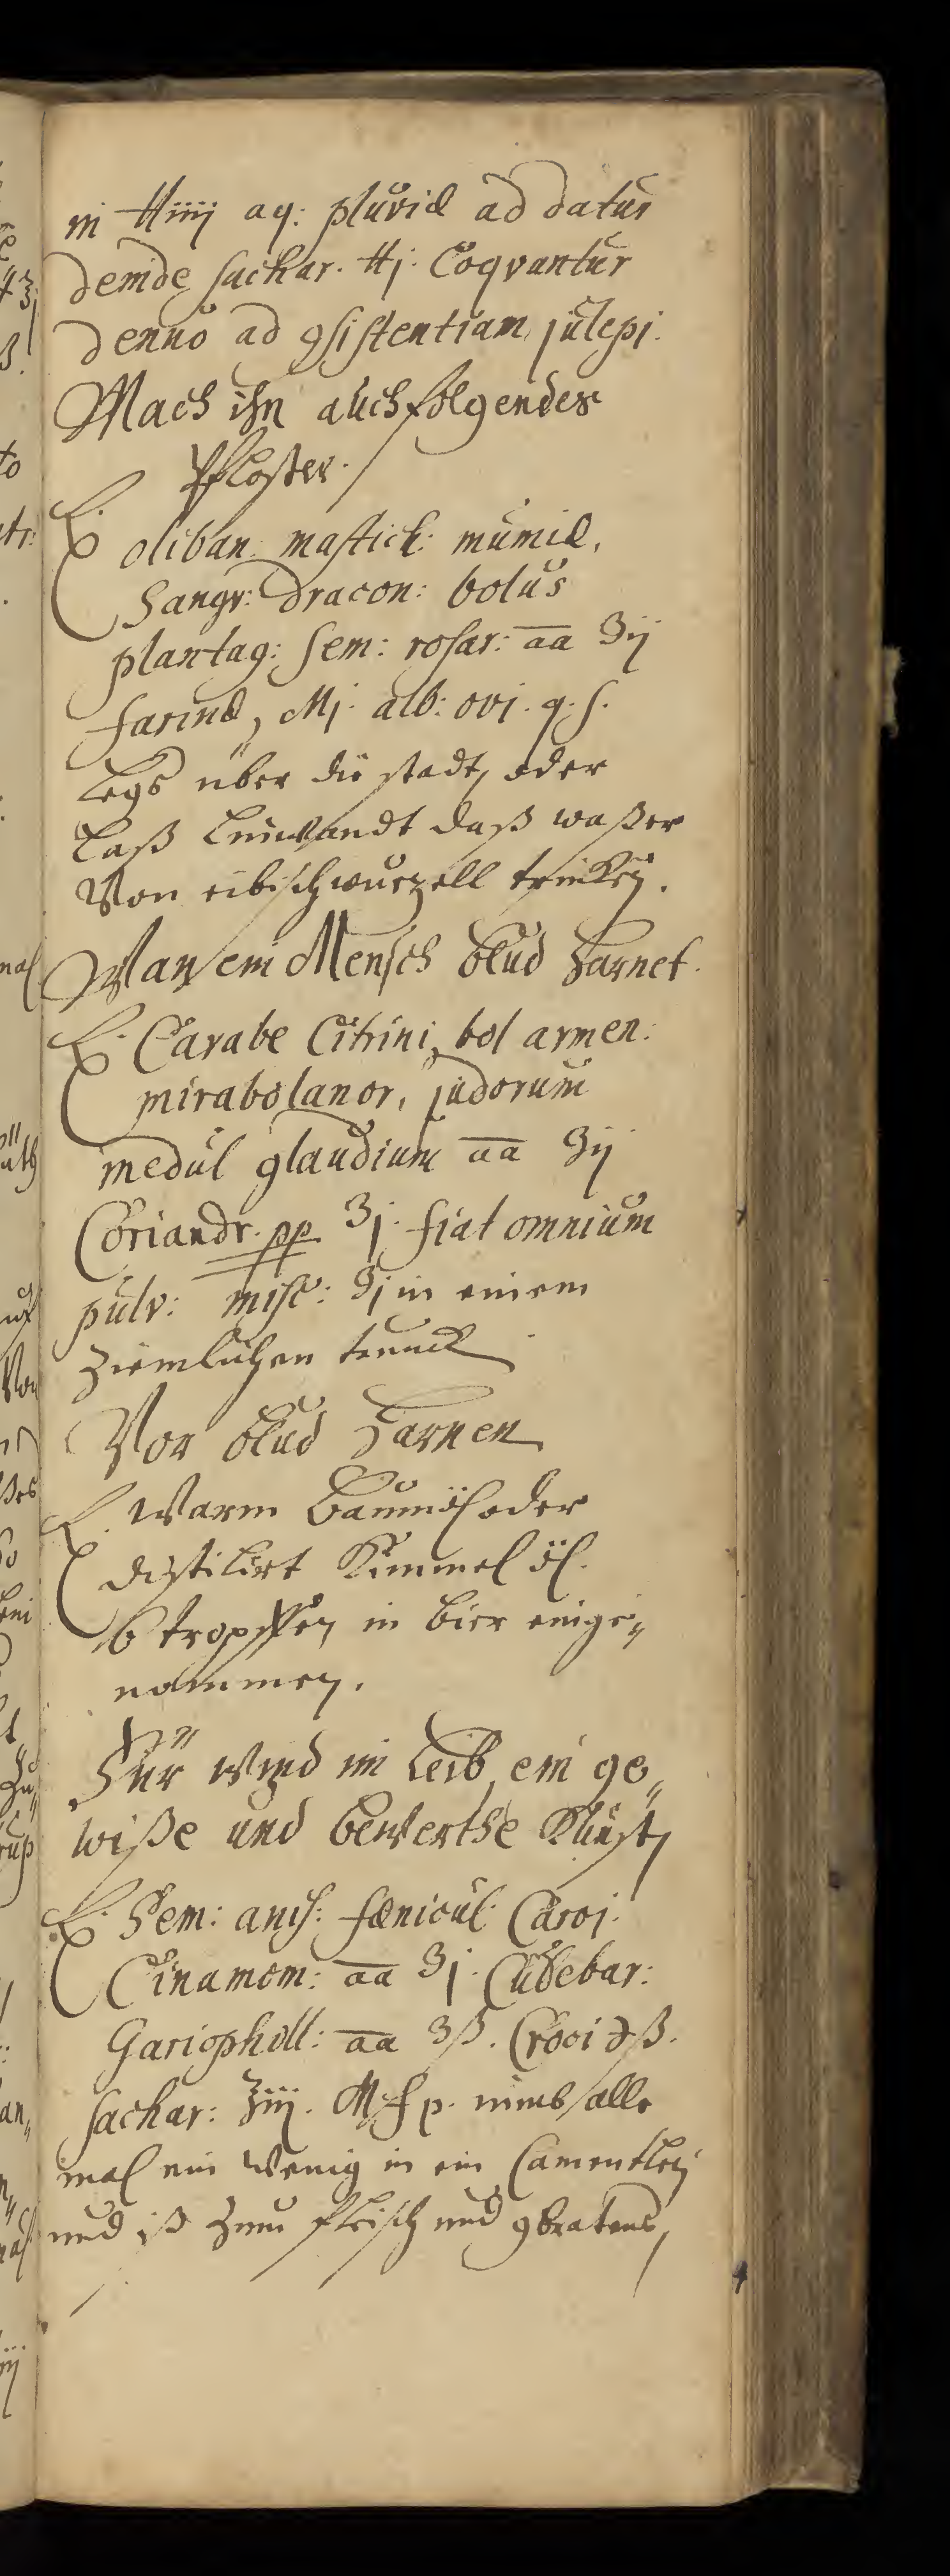 in ℔iiij aq: pluviæ ad datur
deinde sachar. ℔j. Coqvantur
denuo ad gsistentiam julepi.
Mach ihn auch folgendes
Pfloster.
℞. oliban: mastich: mumiæ,
Sangv: Dracon: bolus
plantag: sem: rosar: aa ʒij
farinæ, Mj. alb: ovi. q. s.
Legs über die stadt, oder
Laß daß waßer
Von eibischwurzell trincken.
Wan ein Mensch blud harnet.
℞. Carabe Citrini, bol armen:
mirabolanor, judorum
medul glandium aa ʒij
Coriandr. pp ʒj. fiat omnium
pulv: misc: ʒj in einem
ziemlichen trunck
Vor blud harnen
℞. Warm baumöl oder
distilirt Kümmel öl.
6 tropffen in bier einge„
nommen.
Für Wind im Leib, ein ge„
wiße und bewerthe Kunst,
℞. Sem: anis: fœnicul: Caroi.
Cinamom: aa ʒj. Cubebar:
Gariophill: aa ʒß. Croci ℈ß.
sachar: ℥iij. M. f p. nimb alle
mal ein wenig in ein
und iß zum fleisch und gbratens,